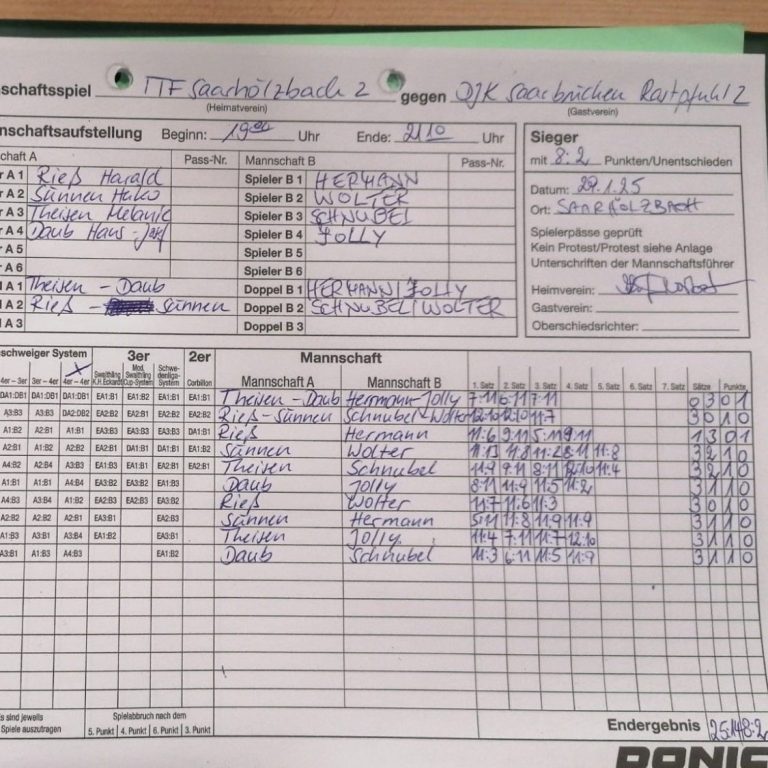 schaftsspiel TTF Saarhölzbach 2 gegen DJK Saarbrücken Rastpfuhl 2
(Heimatverein) (Gastverein)
nschaftsaufstellung Beginn: 19 00 Uhr Ende: 21 10 Uhr
Sieger
mit 8:2 Punkten/Unentschieden
chaft A Pass-Nr. Mannschaft B Pass-Nr.
A 1 Rieß Harald Spieler B 1 HERMANN
A 2 Sünnen Heiko Spieler B 2 WOLTER
A 3 Theisen Melanie Spieler B 3 SCHNUBEL
A 4 Daub Hans-Josef Spieler B 4 JOLLY
A 5 Spieler B 5
A 6 Spieler B 6
A 1 Theisen - Daub Doppel B 1 HERMANN/JOLLY
A 2 Rieß - Sünnen Doppel B 2 SCHNUBEL/WOLTER
A 3 Doppel B 3
Datum: 29.1.25
Ort: SAARHÖLZBACH
Spielerpässe geprüft
Kein Protest/Protest siehe Anlage
Unterschriften der Mannschaftsführer
Heimverein:
Gastverein:
Oberschiedsrichter:
schweiger System 3er 2er Mannschaft
4er – 3er 3er – 4er 4er – 4er Swaythling K.H.Eckardt Mod. Swaythling Cup-System Schwe-denliga-System Corbillon Mannschaft A Mannschaft B 1. Satz 2. Satz 3. Satz 4. Satz 5. Satz 6. Satz 7. Satz Sätze Punkte
DA1:DB1 DA1:DB1 DA1:DB1 EA1:B1 EA1:B2 EA1:B1 EA1:B1 Theisen - Daub Hermann Jolly 7:11 6:11 7:11 0 3 0 1
A3:B3 A3:B3 DA2:DB2 EA2:B2 EA2:B1 EA2:B2 EA2:B2 Rieß - Sünnen Schnubel - Wolter 12:10 12:10 11:7 3 0 1 0
A1:B2 A1:B1 A1:B2 EA3:B3 EA3:B3 EA3:B3 Rieß Hermann 11:6 9:11 5:11 9:11 1 3 0 1
A2:B1 A2:B2 A2:B1 EA2:B1 EA1:B1 EA2:B1 EA1:B2 Sünnen Wolter 11:13 11:8 11:2 8:11 11:8 3 2 1 0
A4:B2 A2:B4 A3:B3 EA1:B3 EA2:B2 EA1:B2 EA2:B1 Theisen Schnubel 11:9 9:11 8:11 12:10 11:4 3 2 1 0
A1:B1 A1:B1 A4:B4 EA3:B2 EA3:B2 EA3:B2 Daub Jolly 8:11 11:9 11:5 11:2 3 1 1 0
A4:B3 A3:B4 A1:B1 EA2:B3 EA2:B3 EA2:B3 Rieß Wolter 11:7 11:6 11:3 3 0 1 0
A2:B2 A2:B2 A2:B1 EA3:B1 EA2:B3 Sünnen Hermann 5:11 11:8 11:9 11:9 3 1 1 0
A1:B3 A3:B1 A3:B4 EA1:B2 EA3:B1 Theisen Jolly 11:4 7:11 11:7 12:10 3 1 1 0
A3:B1 A1:B3 A4:B3 EA1:B2 Daub Schnubel 11:3 6:11 11:5 11:9 3 1 1 0
s sind jeweils Spielabbruch nach dem
Spiele auszutragen 5. Punkt 4. Punkt 6. Punkt 3. Punkt
Endergebnis 25:14 8:2
DONIC